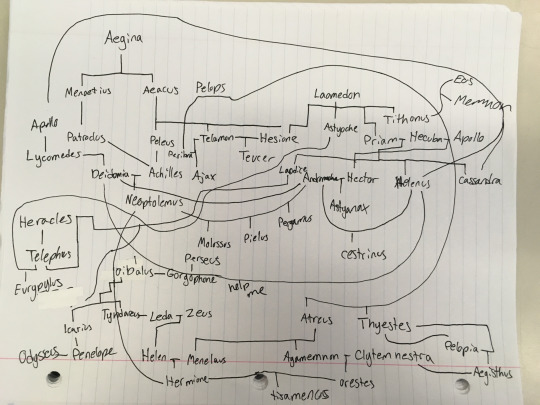 Aegina
Menoetius
Aeacus
Pelops
Laomedon
Eos
Memnon
Apollo
Tithonus
Astyoche
Patroclus
Peleus
Periboea
Telamon
Hesione
Priam
Hecuba
Apollo
Lycomedes
Teucer
Deidamia
Achilles
Ajax
Laodice
Andromache
Hector
Helenus
Cassandra
Neoptolemus
Astyanax
Heracles
Molossos
Pielus
Pergamus
Cestrinus
Telephus
Perseus
Oibalus
Gorgophone
help
me
Eurypylus
Icarius
Tyndareus
Leda
Zeus
Atreus
Thyestes
Pelopia
Odysseus
Penelope
Helen
Menelaus
Agamemnon
Clytemnestra
Aegisthus
Hermione
Orestes
tisamenos